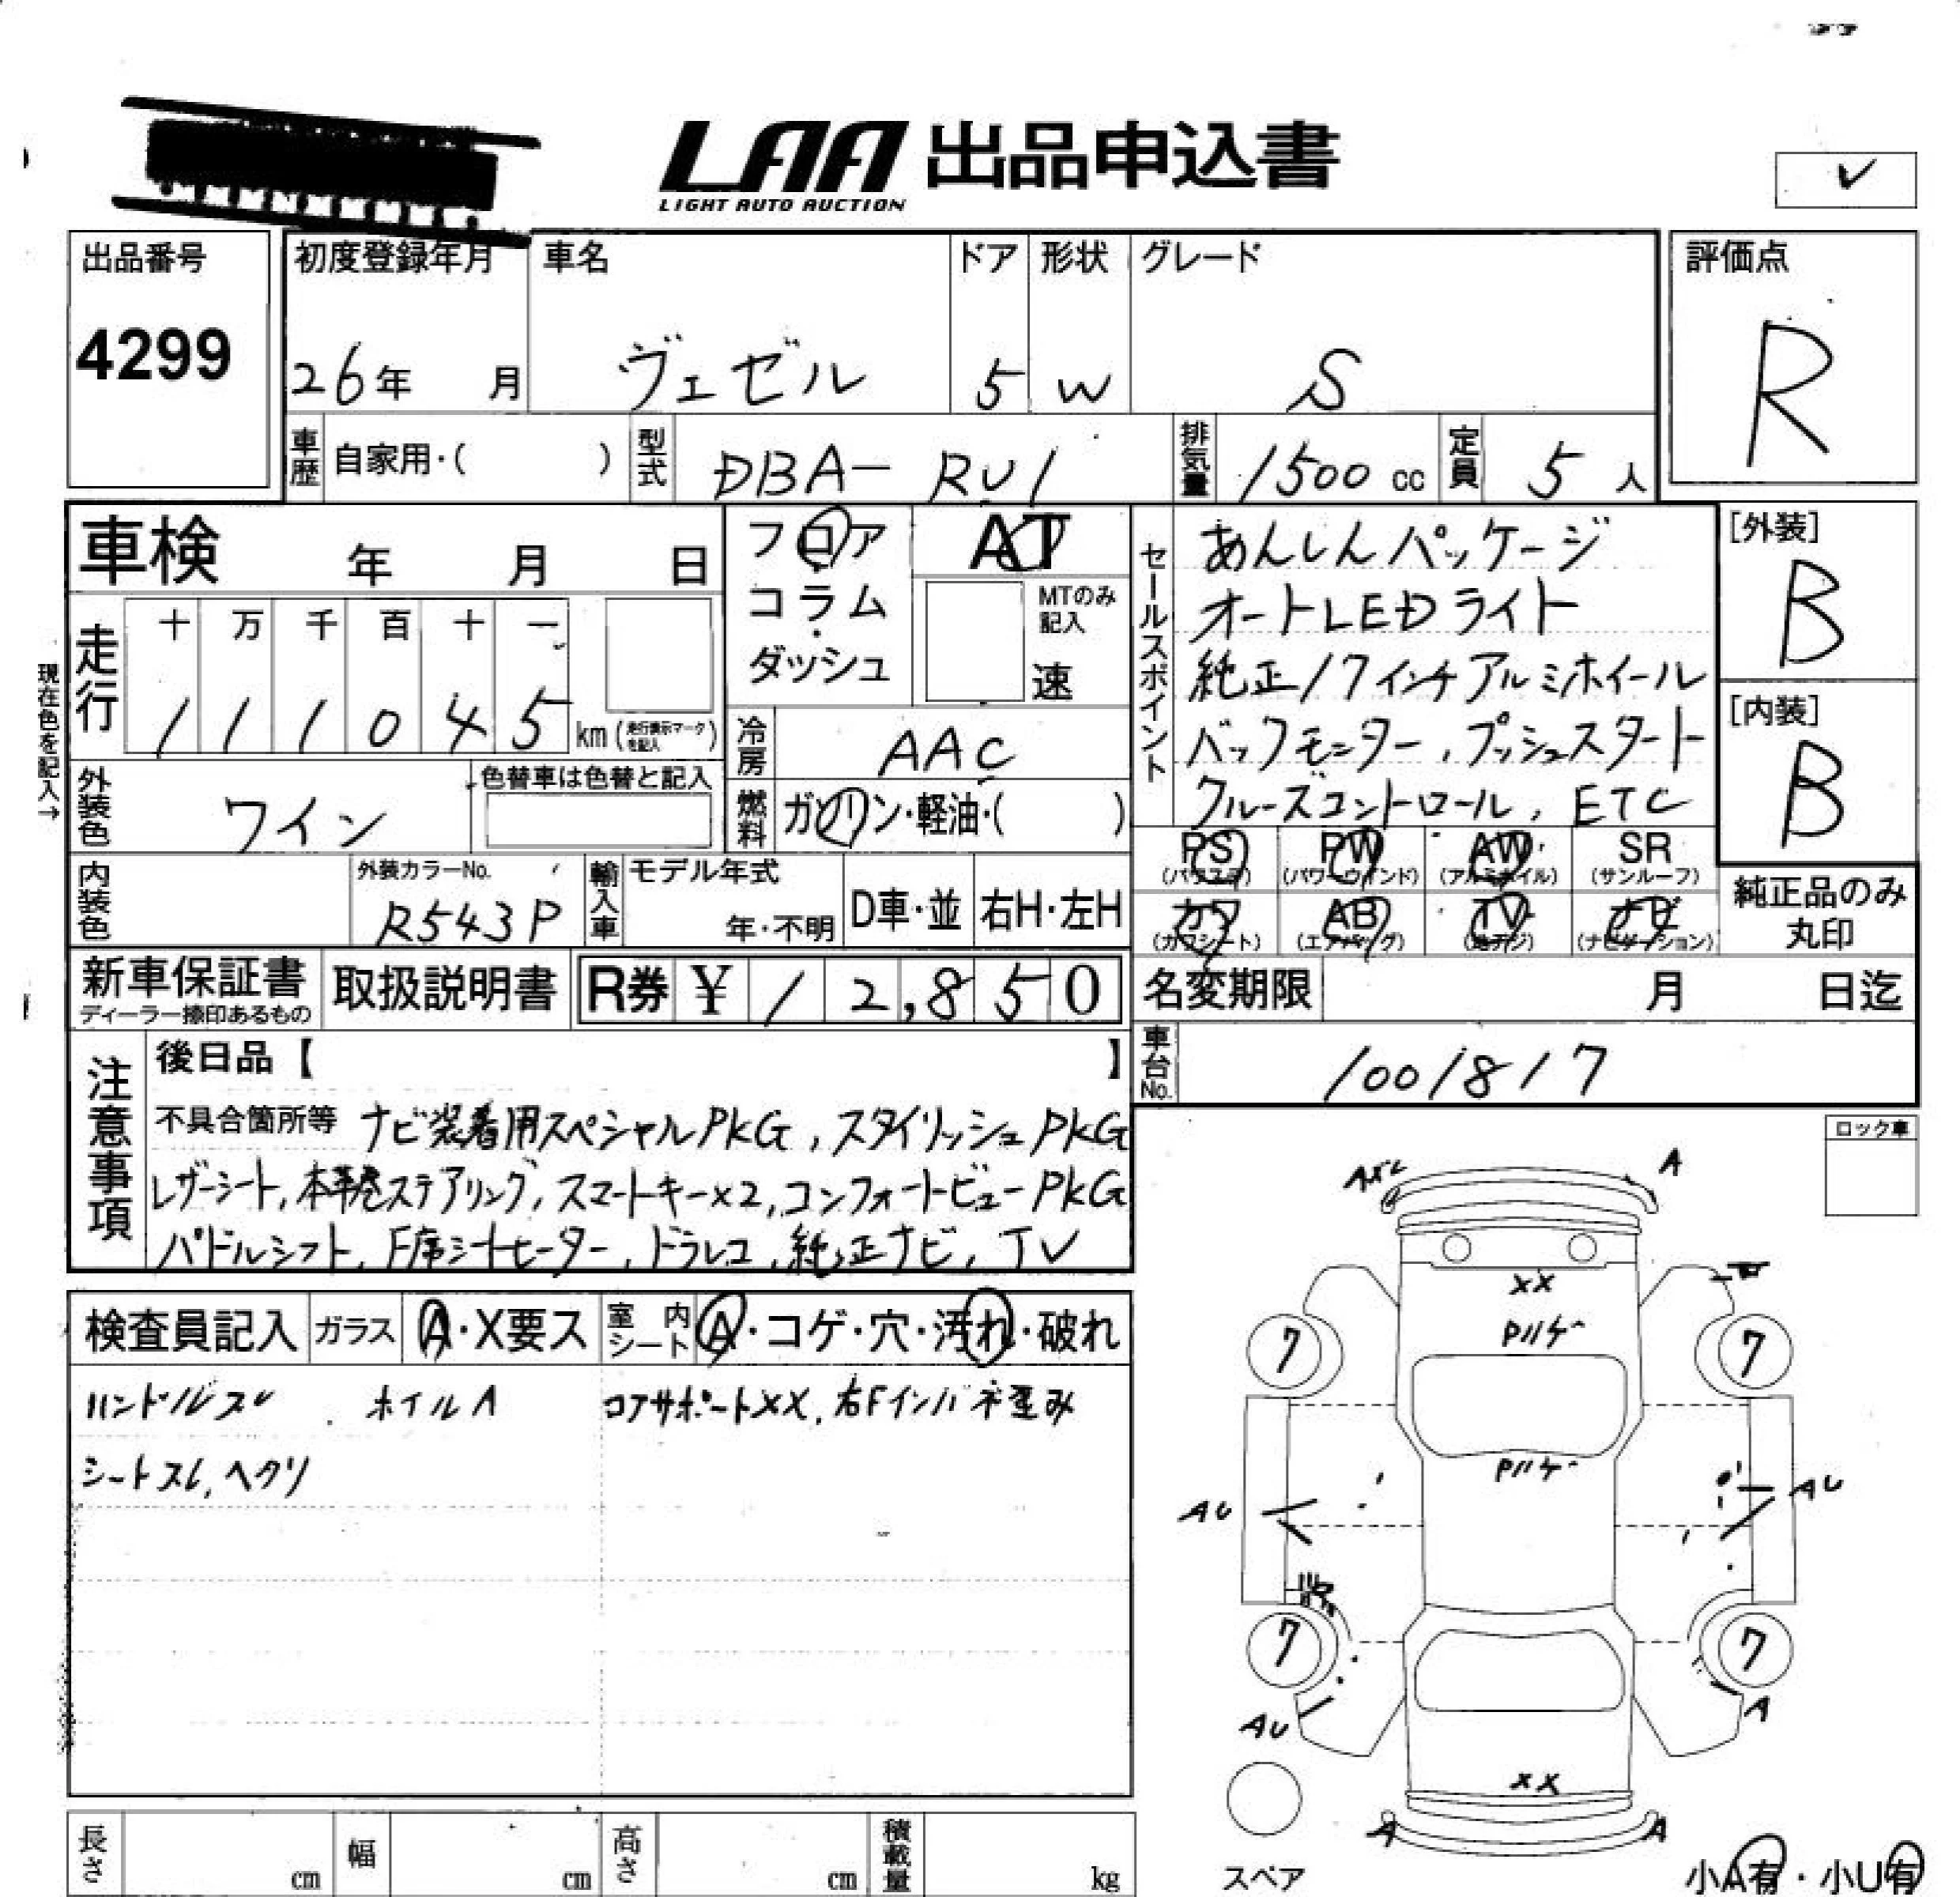 LAA 出品申込書
LIGHT AUTO AUCTION
出品番号
4299
初度登録年月
26年 月
車名
ヴェゼル
ドア
5
形状
W
グレード
S
評価点
R
車歴 自家用・( )
型式 DBA- RU1
排気量 1500 cc
定員 5 人
車検 年 月 日
フロア
コラム
・
ダッシュ
AT
MTのみ
記入
速
セールスポイント
あんしんパッケージ
オートLEDライト
純正17インチアルミホイール
バックモニター、プッシュスタート
クルーズコントロール、ETC
[外装]
B
[内装]
B
現在色を記入→
走行
十 万 千 百 十 一
1 1 1 0 4 5 km (走行表示マークを記入)
冷房 AAC
外装色 ワイン
色替車は色替と記入
燃料 ガソリン・軽油・( )
PS (パワステ)
PW (パワーウインド)
AW (アルミホイル)
SR (サンルーフ)
カワ (カワシート)
AB (エアバッグ)
TV (地デジ)
ナビ (ナビゲーション)
純正品のみ
丸印
内装色
外装カラーNo.
R543P
輸入車
モデル年式
年・不明
D車・並
右H・左H
新車保証書
ディーラー捺印あるもの
取扱説明書
R券 ¥ 12,850
名変期限 月 日迄
車台No. 1001817
注意事項
後日品【 】
不具合箇所等 ナビ装着用スペシャルPKG、スタイリッシュPKG
レザーシート、本革巻ステアリング、スマートキー×2、コンフォートビューPKG
パドルシフト、F席シートヒーター、ドラレコ、純正ナビ、TV
ロック車
検査員記入
ガラス A・X要ス
室内シート A・コゲ・穴・汚れ・破れ
ハンドルスレ ホイルA コアサポートXX、右Fインパネ歪み
シートスレ、ヘタリ
A
XX
Pハゲ
7
7
Pハゲ
AU
AU
7
7
AU
A
XX
A
A
スペア
小A有・小U有
長さ cm
幅 cm
高さ cm
積載量 kg